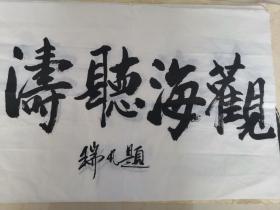 觀海聽濤
瑞凡題